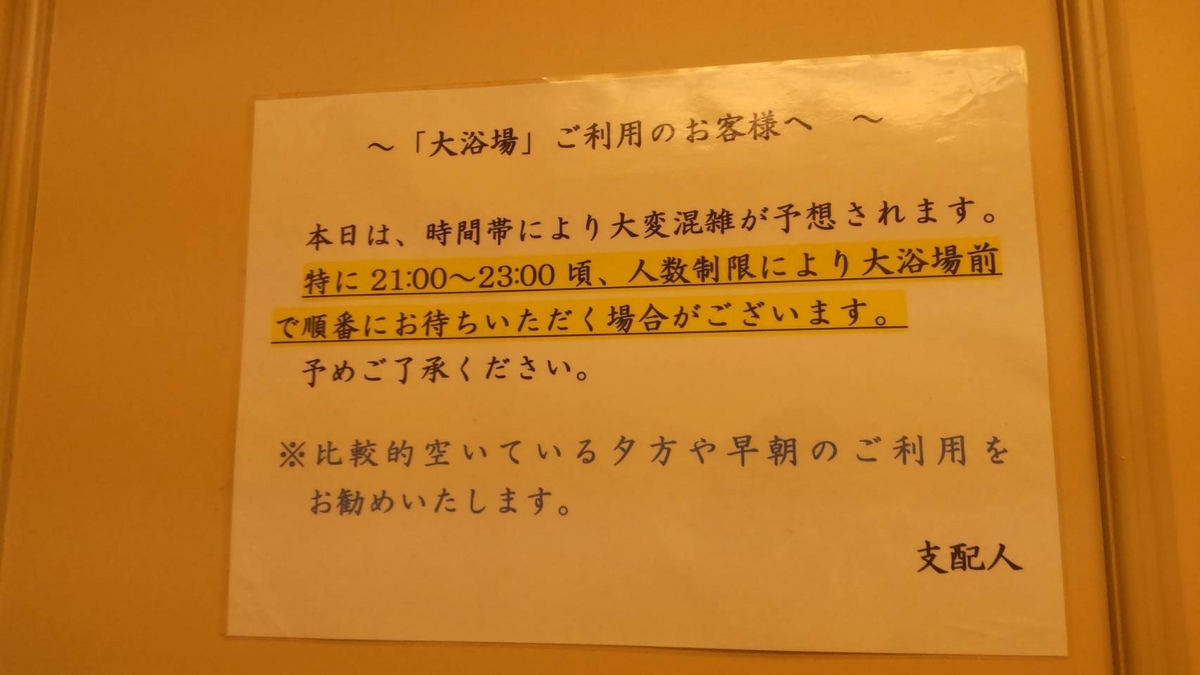 ～「大浴場」ご利用のお客様へ　～
本日は、時間帯により大変混雑が予想されます。
特に 21:00～23:00 頃、人数制限により大浴場前
で順番にお待ちいただく場合がございます。
予めご了承ください。
※比較的空いている夕方や早朝のご利用を
お勧めいたします。
支配人